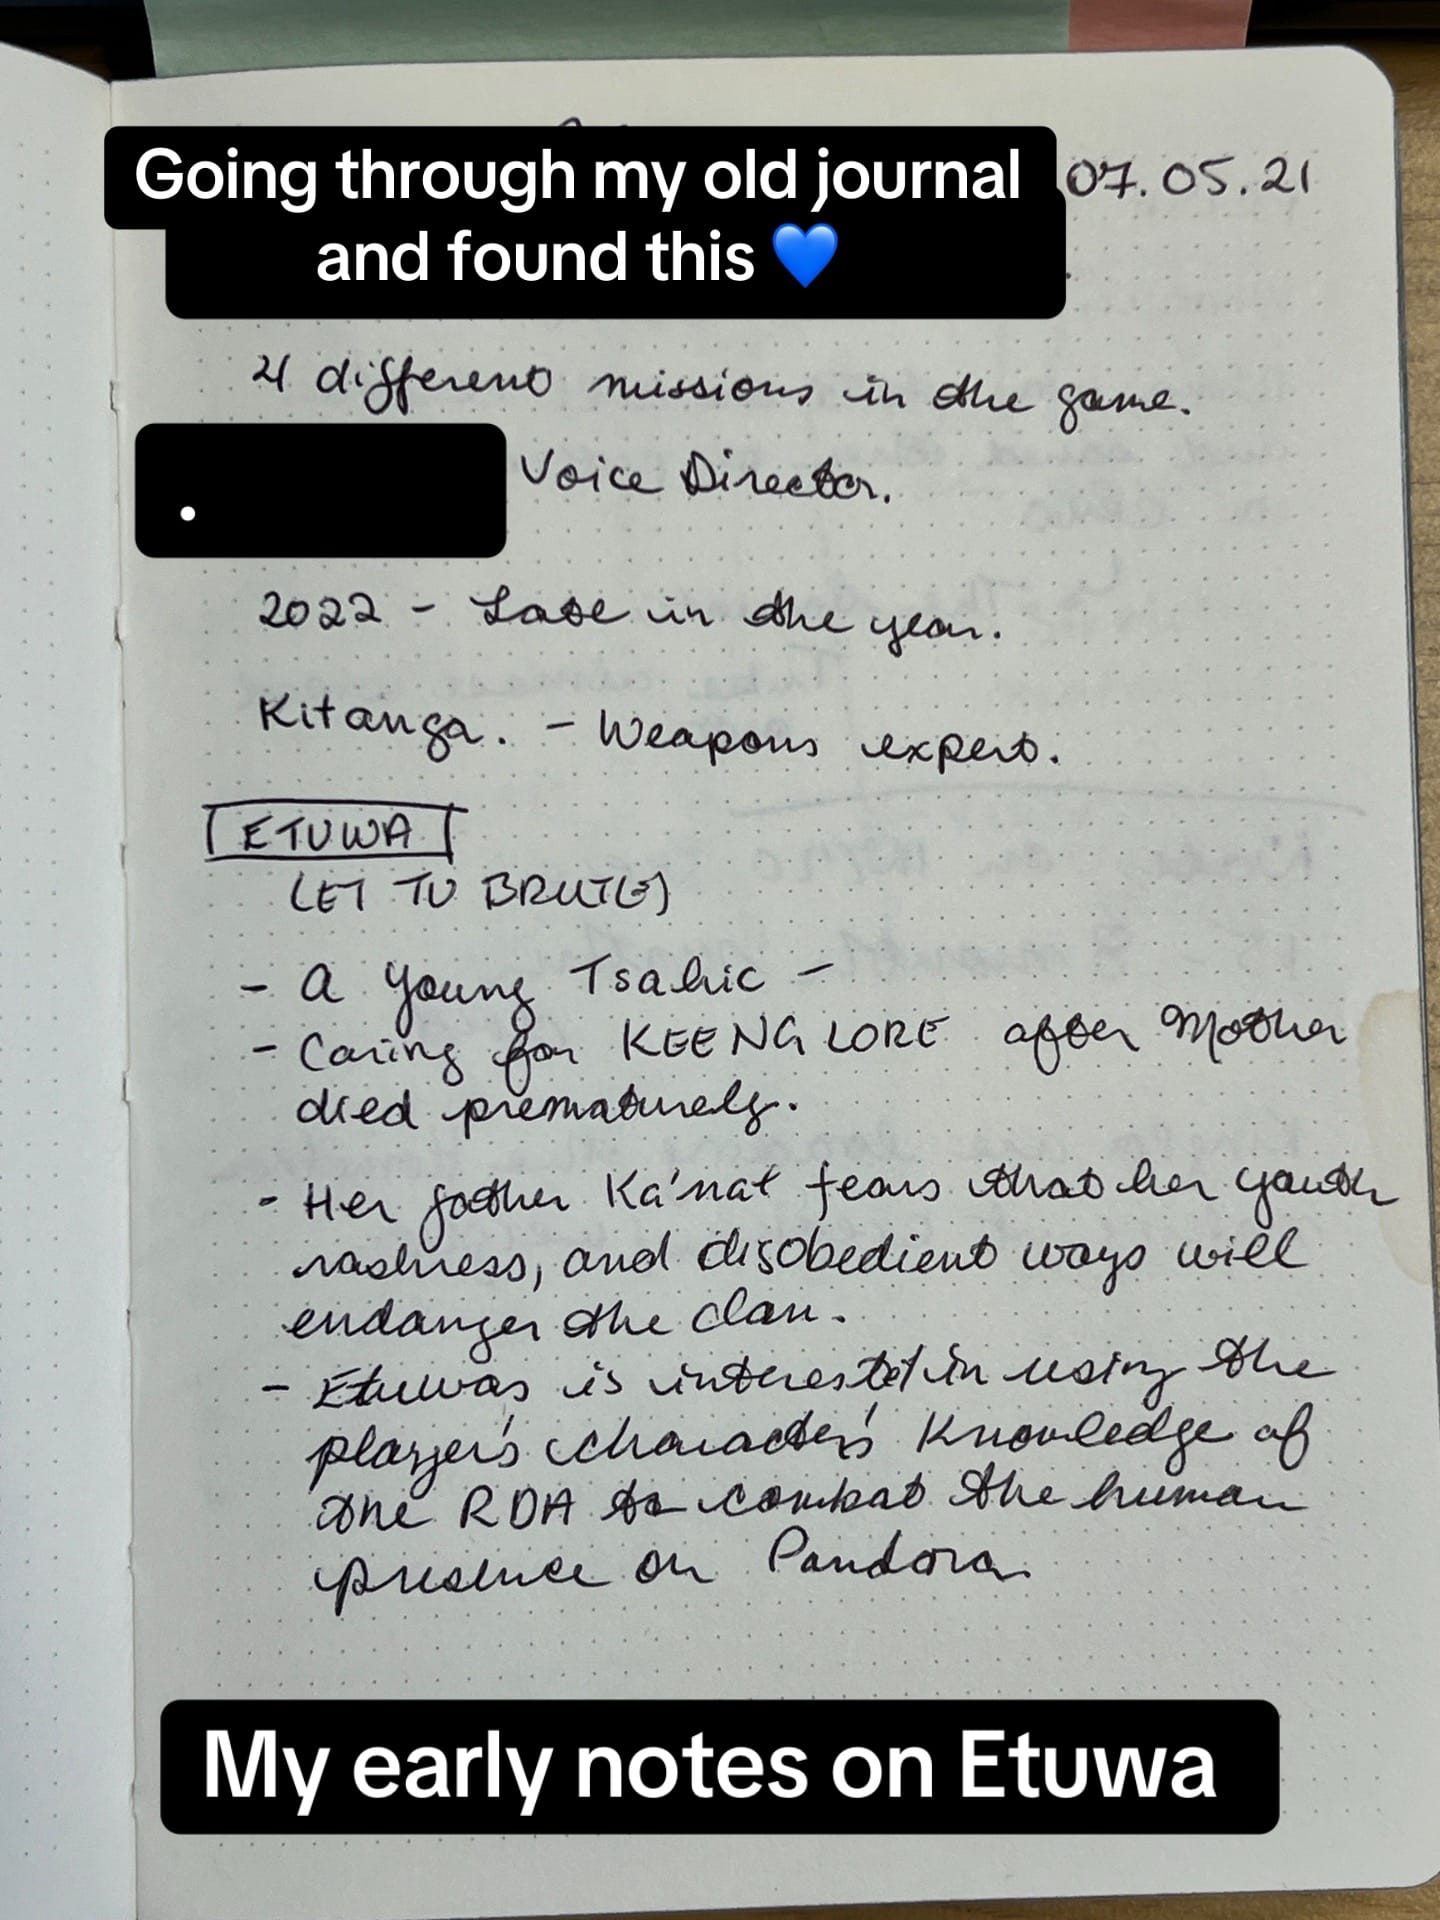 Going through my old journal
and found this 💙
07.05.21
4 different missions in the game.
Voice Director.
2022 - Late in the year.
Kitanga. - Weapons expert.
ETUWA
(ET TU BRUTE)
- A Young Tsahic -
- Caring for KEENG LORE after Mother
died prematurely.
- Her father Ka'nat fears that her youth
rashness, and disobedient ways will
endanger the clan.
- Etuwas is interested in using the
player's character's knowledge of
the RDA to combat the human
presence on Pandora
My early notes on Etuwa